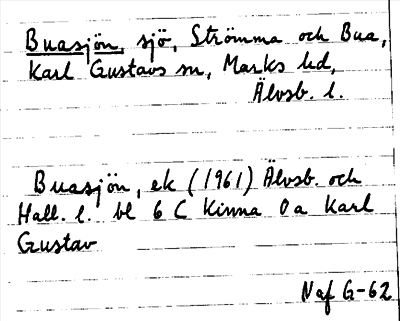 Buasjön, sjö, Strömma och Bua,
Karl Gustavs sn, Marks hd,
Älvsb. l.
Buasjön, ek (1961) Älvsb. och
Hall. l. bl 6 C Kinna Oa Karl
Gustav
Naf G-62